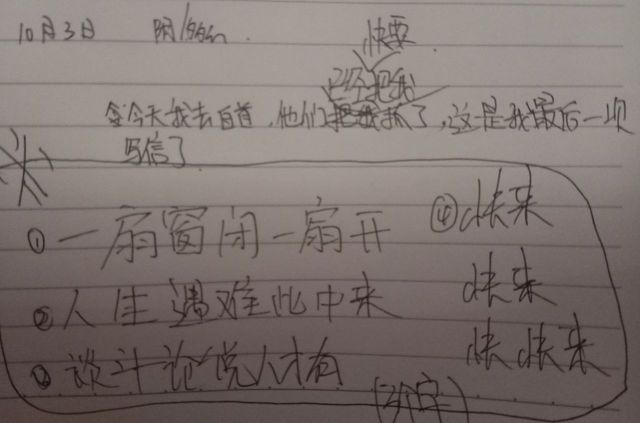 10月3日 阴1998年
快要
已经把我
今天我去自首,他们把我抓了,这是我最后一次
写信了
①一扇窗闭一扇开 ④快来
②人生遇难此中来 快来
③谈斗论说人才有 快快来